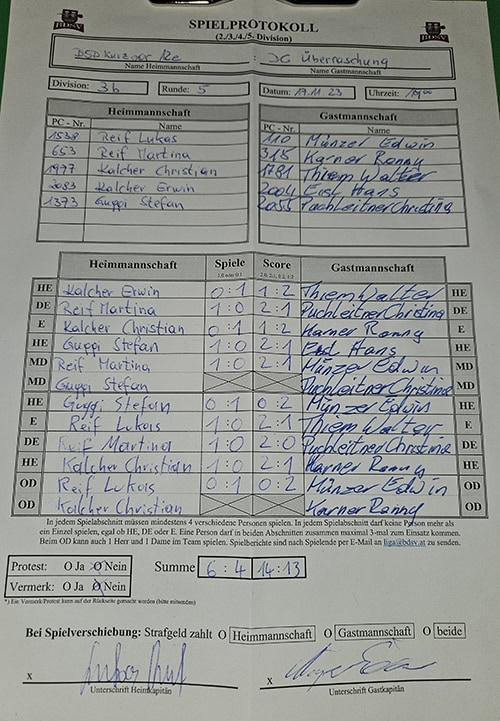 SPIELPROTOKOLL
(2./3./4./5. Division)
BDSV
BDSV
: DC Überraschung
Name Heimmannschaft Name Gastmannschaft
Division: 3b Runde: 5 Datum: 17.11.23 Uhrzeit:
Heimmannschaft Gastmannschaft
PC - Nr. Name PC - Nr. Name
1538 Reif Lukas 110 Münzer Edwin
653 Reif Martina 315 Karner Ronny
1977 Kalcher Christian 1781 Thiem Walter
2083 Kalcher Erwin 2004 Hans
1373 Guggi Stefan 2055 Puchleitner Christina
Heimmannschaft Spiele Score Gastmannschaft
1:0 oder 0:1 2:0, 2:1, 0:2, 1:2
HE Kalcher Erwin 0:1 1:2 Thiem Walter HE
DE Reif Martina 1:0 2:1 Puchleitner Christina DE
E Kalcher Christian 0:1 1:2 Karner Ronny E
HE Guggi Stefan 1:0 2:1 Hans HE
MD Reif Martina 1:0 2:1 Münzer Edwin MD
MD Guggi Stefan Puchleitner Christina MD
HE Guggi Stefan 0:1 0:2 Münzer Edwin HE
E Reif Lukas 1:0 2:1 Thiem Walter E
DE Reif Martina 1:0 2:0 Puchleitner Christina DE
HE Kalcher Christian 1:0 2:1 Karner Ronny HE
OD Reif Lukas 0:1 0:2 Münzer Edwin OD
OD Kalcher Christian Karner Ronny OD
In jedem Spielabschnitt müssen mindestens 4 verschiedene Personen spielen. In jedem Spielabschnitt darf keine Person mehr als
ein Einzel spielen, egal ob HE, DE oder E. Eine Person darf in beiden Abschnitten zusammen maximal 3-mal zum Einsatz kommen.
Beim OD kann auch 1 Herr und 1 Dame im Team spielen. Spielberichte sind nach Spielende per E-Mail an liga@bdsv.at zu senden.
Protest: O Ja O Nein Summe 6:4 14:13
Vermerk: O Ja O Nein
*) Ein Vermerk/Protest kann auf der Rückseite gemacht werden (bitte ausfüllen)
Bei Spielverschiebung: Strafgeld zahlt O Heimmannschaft O Gastmannschaft O beide
x x
Unterschrift Heimkapitän Unterschrift Gastkapitän